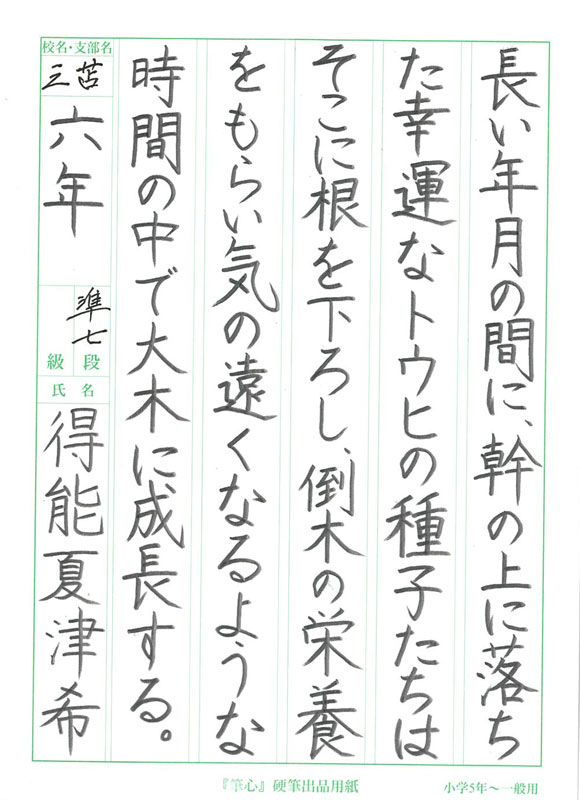 長い年月の間に、幹の上に落ち
た幸運なトウヒの種子たちは
そこに根を下ろし、倒木の栄養
をもらい気の遠くなるような
時間の中で大木に成長する。
校名・支部名
三苫
六年
準七
段
級
氏名
得能夏津希
『筆心』硬筆出品用紙
小学5年~一般用